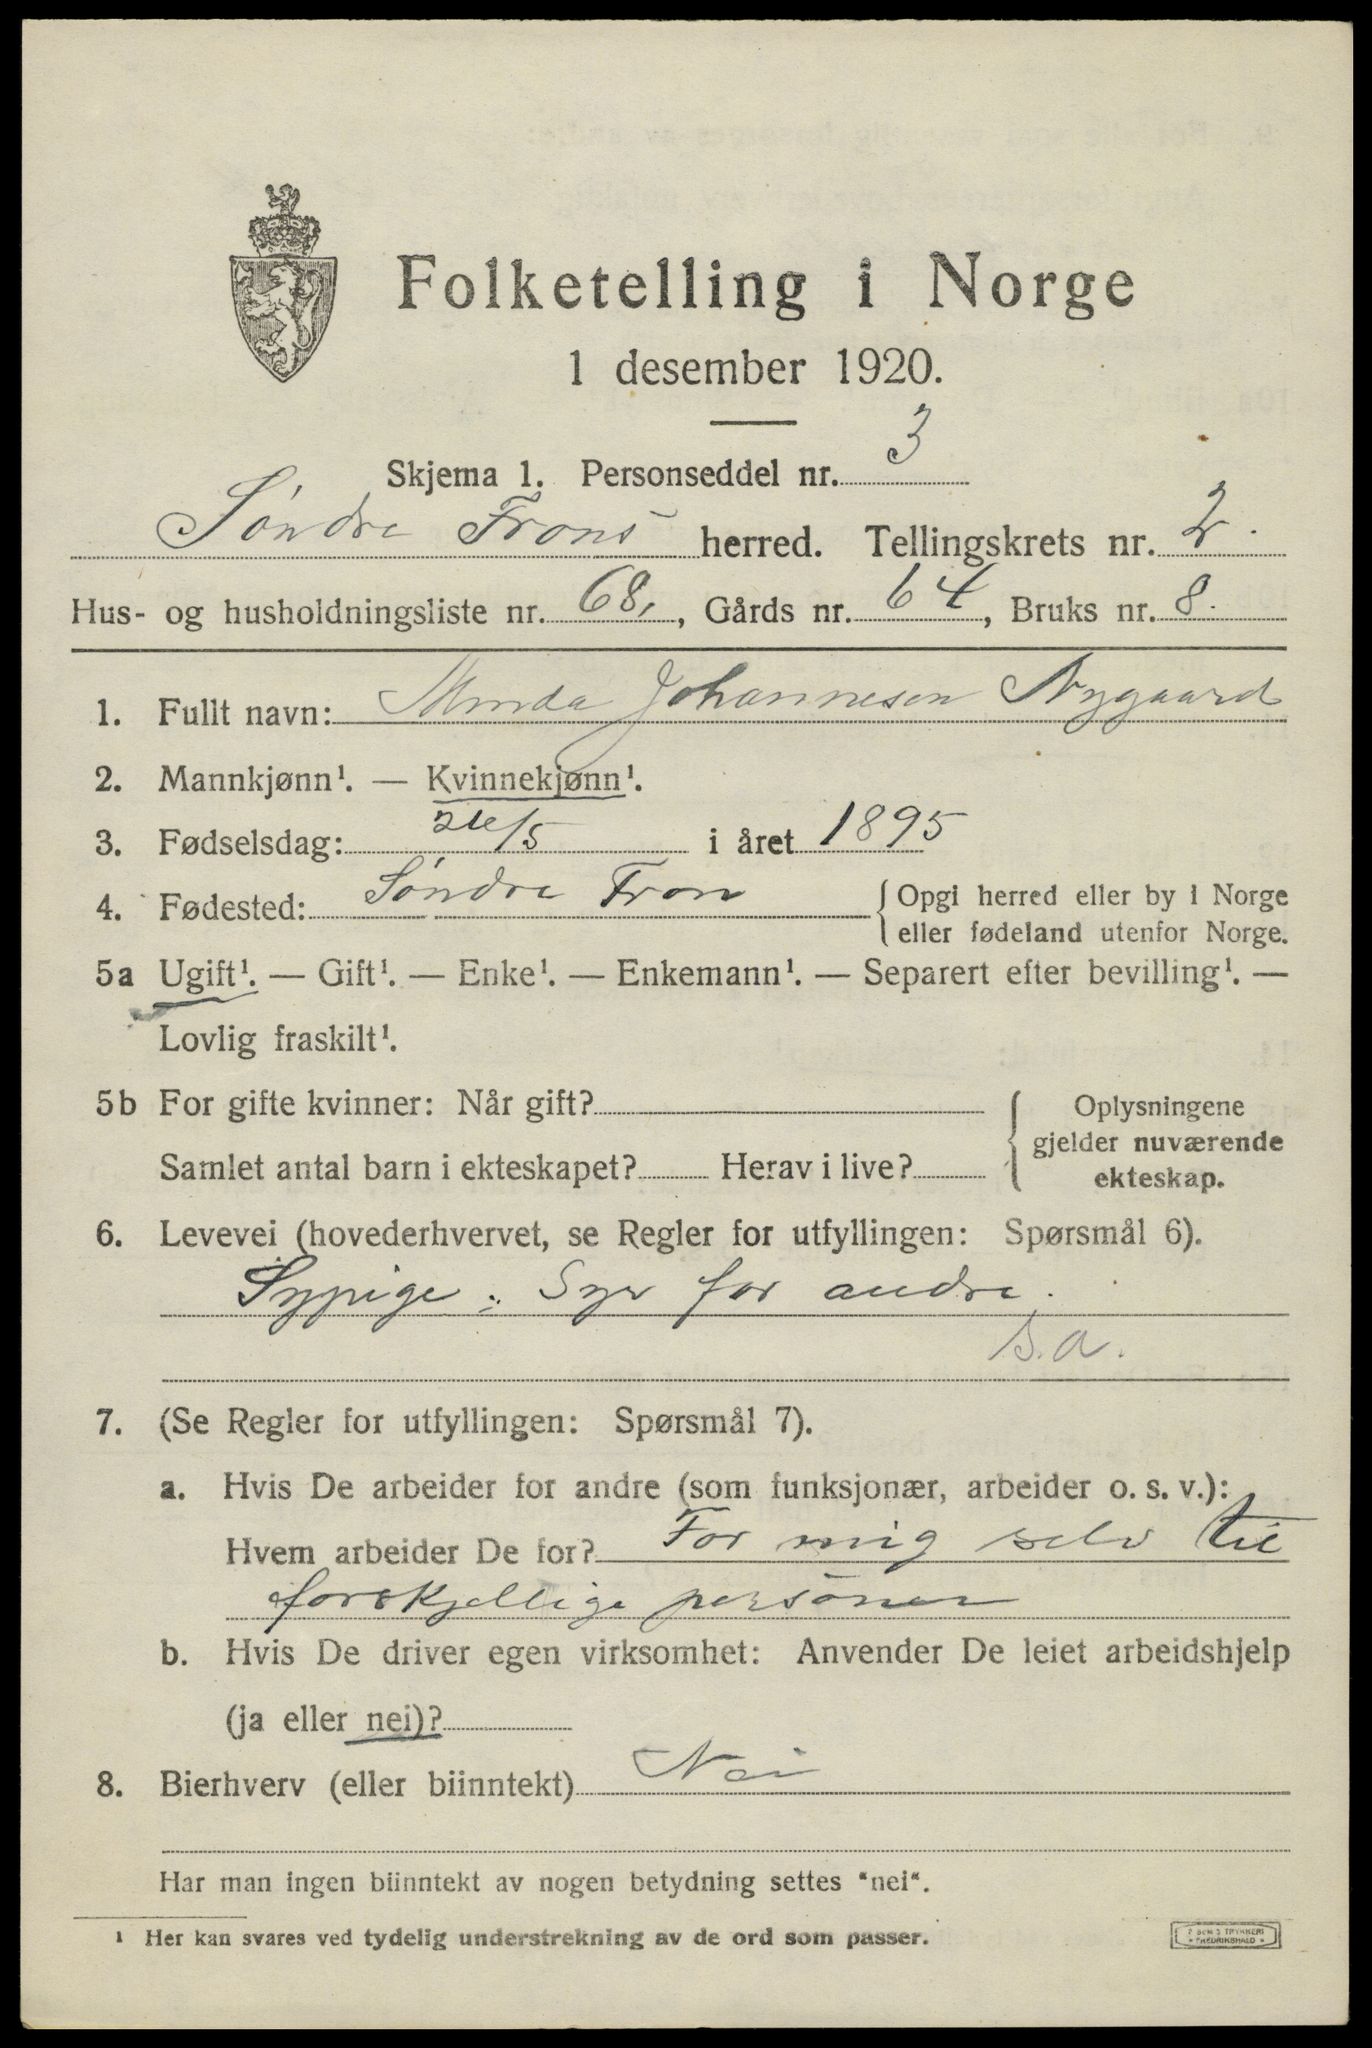 Folketelling i Norge
1 desember 1920.
Skjema 1. Personseddel nr. 3
Søndre Frons herred. Tellingskrets nr. 2.
Hus- og husholdningsliste nr. 68, Gårds nr. 64, Bruks nr. 8.
1. Fullt navn: Minda Johannesen Nygaard
2. Mannkjønn¹. — Kvinnekjønn¹.
3. Fødselsdag: 26/5 i året 1895
4. Fødested: Søndre Fron { Opgi herred eller by i Norge
eller fødeland utenfor Norge.
5a Ugift¹. — Gift¹. — Enke¹. — Enkemann¹. — Separert efter bevilling¹. —
Lovlig fraskilt¹.
5b For gifte kvinner: Når gift? { Oplysningene
gjelder nuværende
Samlet antal barn i ekteskapet? Herav i live? ekteskap.
6. Levevei (hovederhvervet, se Regler for utfyllingen: Spørsmål 6).
Sypige: Syr for andre.
s.a.
7. (Se Regler for utfyllingen: Spørsmål 7).
a. Hvis De arbeider for andre (som funksjonær, arbeider o. s. v.):
Hvem arbeider De for? For mig selv til
forskjellige personer
b. Hvis De driver egen virksomhet: Anvender De leiet arbeidshjelp
(ja eller nei)?
8. Bierhverv (eller biinntekt) Nei
Har man ingen biinntekt av nogen betydning settes "nei".
¹ Her kan svares ved tydelig understrekning av de ord som passer.